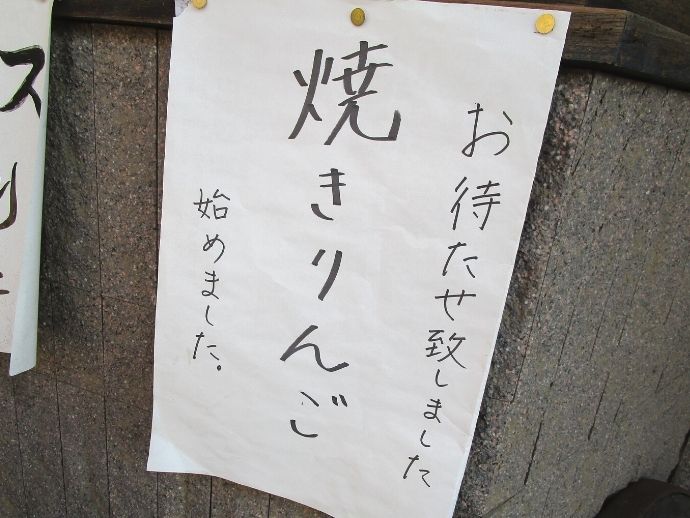 お待たせ致しました
焼きりんご
始めました。
ス